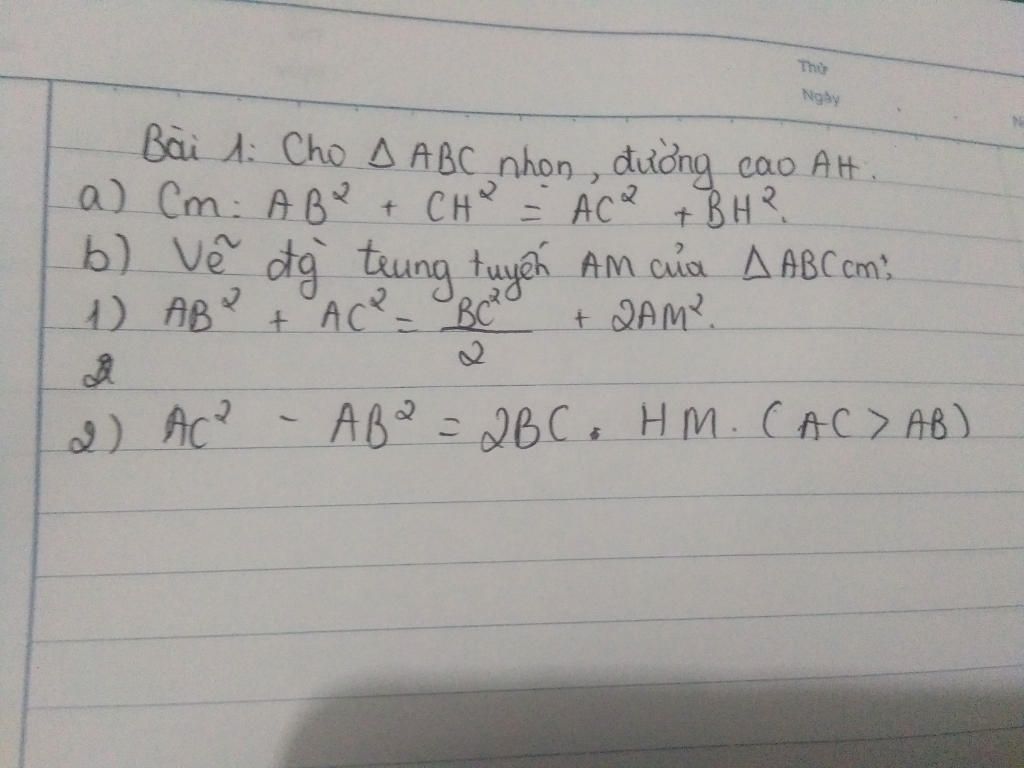 Thứ
Ngày
Bài 1: Cho Δ ABC nhọn, đường cao AH.
a) Cm: AB² + CH² = AC² + BH².
b) Vẽ đg̀ trung tuyến AM của Δ ABC cm:
1) AB² + AC² = BC²/2 + 2AM².
2
2) AC² - AB² = 2BC . HM. (AC > AB)